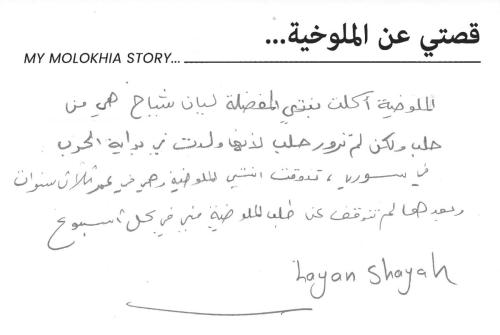 قصتي عن الملوخية...
MY MOLOKHIA STORY...
الملوخية أكلت بنتي المفضلة ليان شياح هي من
حلب ولكن لم تزور حلب لأنها ولدت في بداية الحرب
في سوريا، تذوقت ابنتي الملوخية وهي في عمر ثلاث سنوات
وبعدها لم تتوقف عن طلب الملوخية مني في كل أسبوع
Layan Shayah